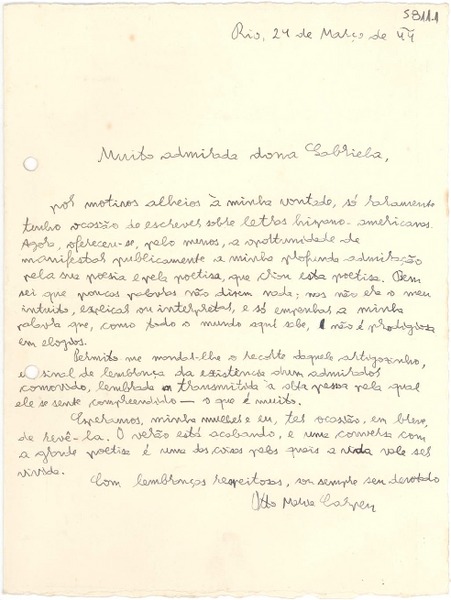 5811.1
Rio, 24 de Março de 44
Muito admirada dona Gabriela,
por motivos alheios à minha vontade, só raramente
tenho ocasião de escrever sobre letras hispano-americanas.
Agora, ofereceu-se, pelo menos, a oportunidade de
manifestar publicamente a minha profunda admiração
pela sua poesia e pela poetisa, que criou esta poetisa. Bem
sei que poucas palavras não dizem nada; mas não era o meu
intuito, explicar ou interpretar, e só empenhar a minha
palavra que, como todo o mundo aqui sabe, não é prodigiosa
em elogios.
Permita me mandar-lhe o recorte daquele artigozinho,
em sinal de lembrança da existência dum admirador
comovido, lembrada transmitida à alta pessoa pela qual
ele se sente compreendido — o que é muito.
Esperamos, minha mulher e eu, ter ocasião, em breve,
de revê-la. O verão está acabando, e uma conversa com
a grande poetisa é uma das coisas pelas quais a vida vale ser
vivida.
Com lembranças respeitosas, sou sempre seu devotado
Otto Maria Carpeaux